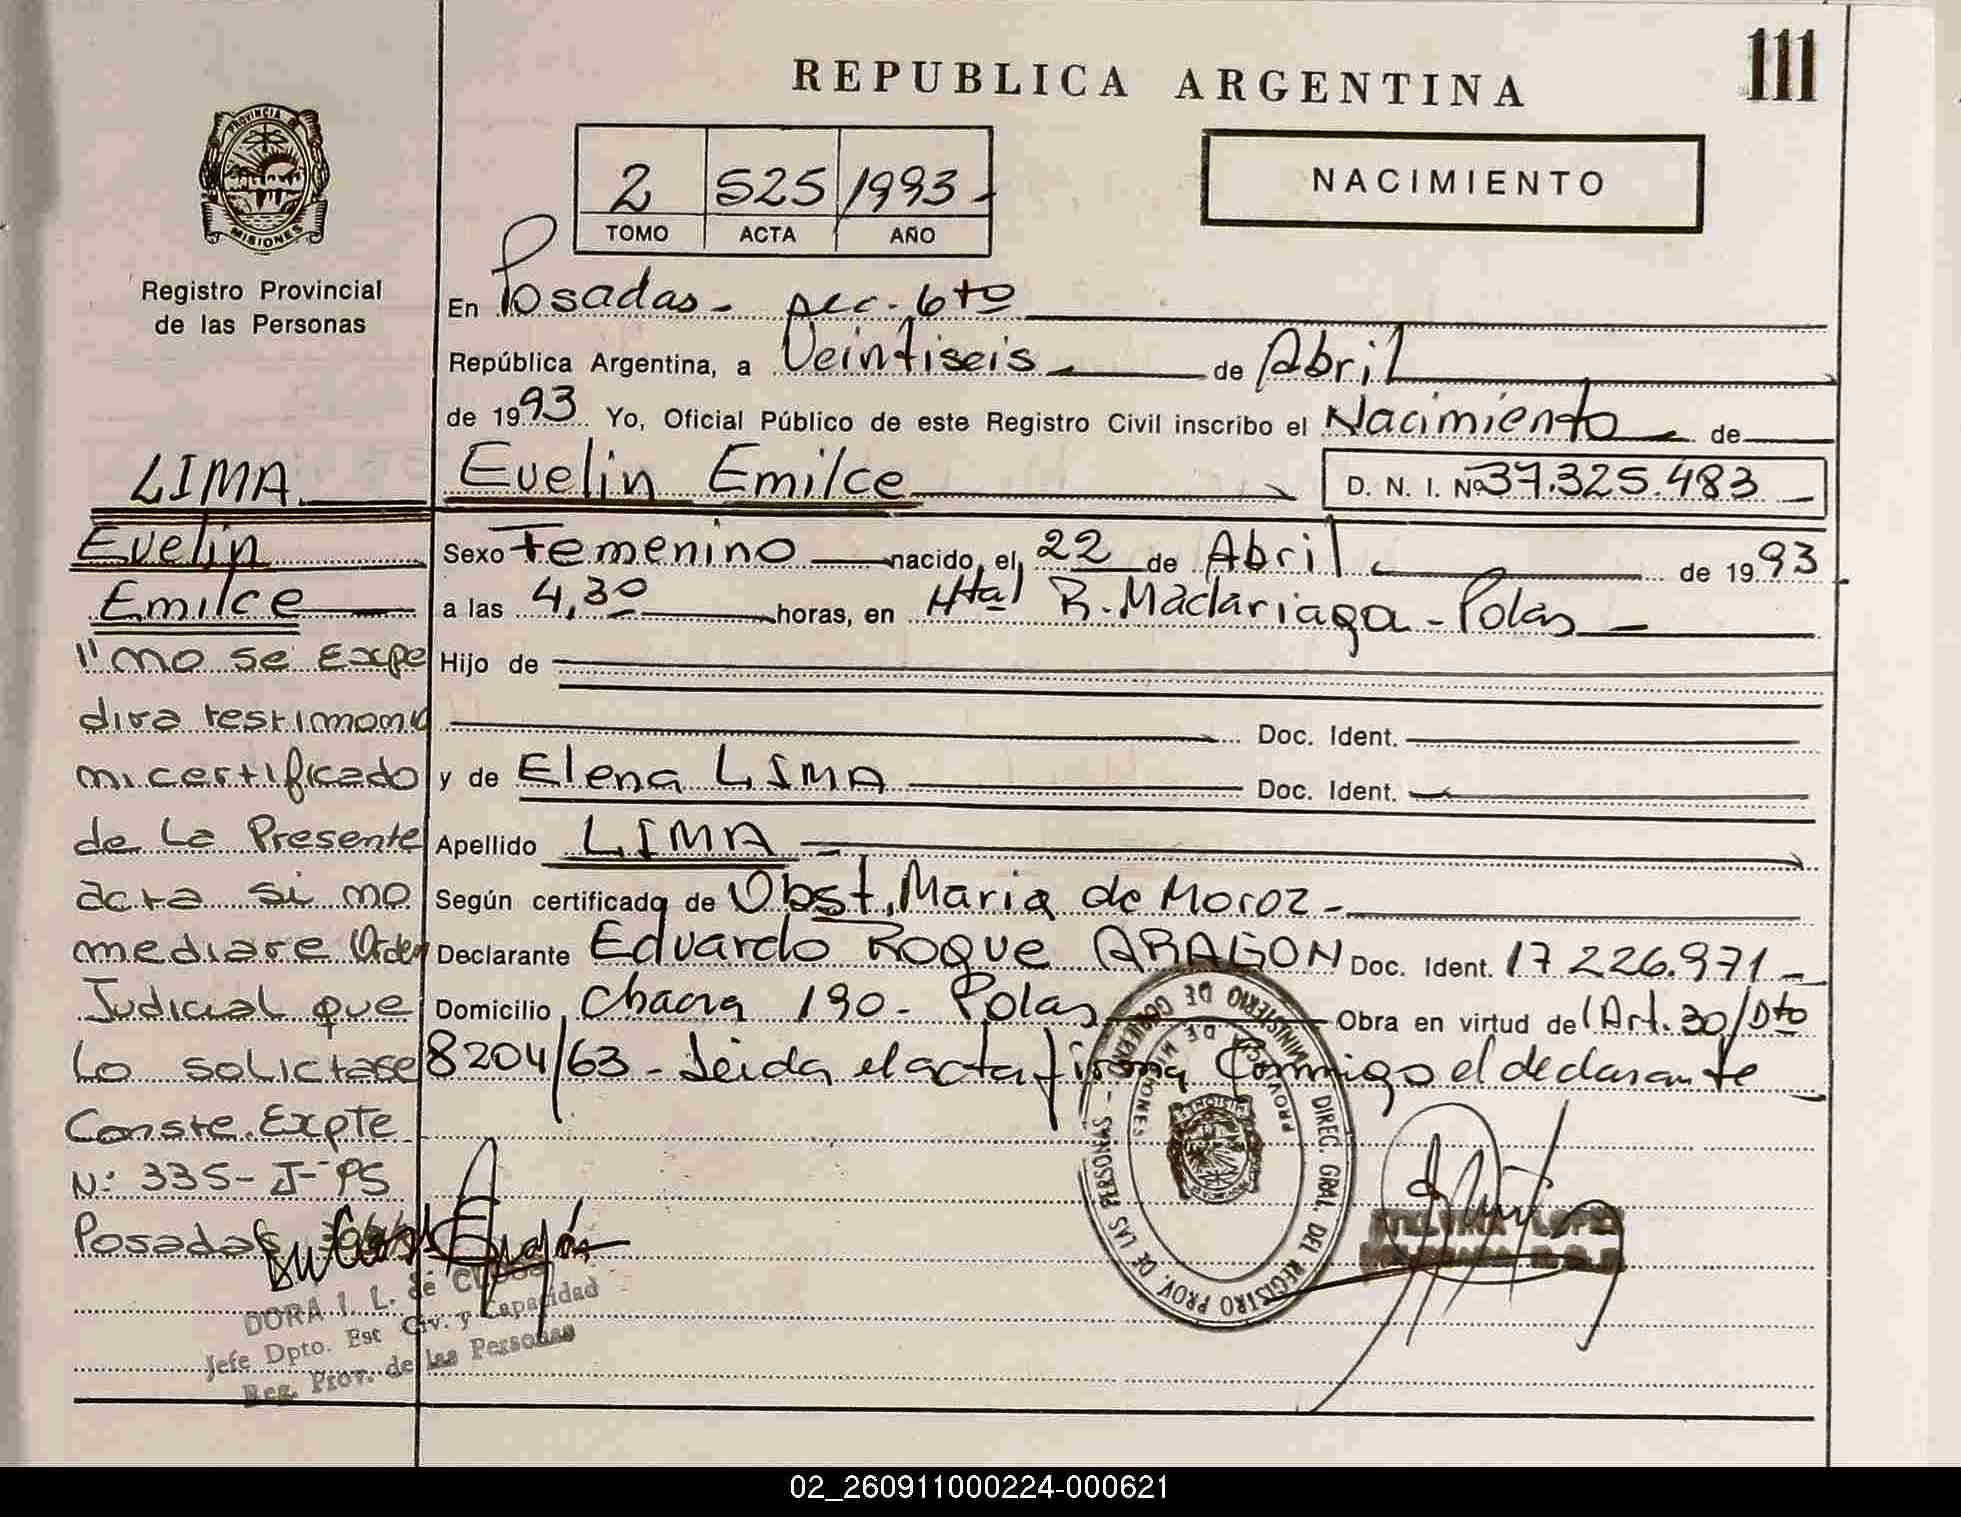 111
REPUBLICA ARGENTINA
NACIMIENTO
2 525 1993-
TOMO ACTA AÑO
PROVINCIA DE
MISIONES
Registro Provincial
de las Personas
En Posadas - sec - 6to
República Argentina, a Veintiseis de Abril
de 1993 Yo, Oficial Público de este Registro Civil inscribo el Nacimiento de
Evelin Emilce D. N. I. Nº 37.325.483
Sexo Femenino nacido, el, 22 de Abril de 1993
a las 4,30 horas, en Htal R. Madariaga - Pdas
Hijo de
Doc. Ident.
y de Elena LIMA Doc. Ident.
Apellido LIMA
Según certificado de Obst, Maria de Moroz -
Declarante Eduardo Roque ARAGON Doc. Ident. 17 226.971 -
Domicilio Chacra 190 - Pdas Obra en virtud del Art. 30/Dto
8204/63 - Leida el acta firma Conmigo el declarante
LIMA
Evelin
Emilce
"no se Expe
dira testimonio
ni certificado
de La Presente
acta si no
mediare Orden
Judicial que
Lo solicitase
Conste. Expte
N: 335-J-95
Posadas
DORA I. L. de
Jefe Dpto. Est Civ. y Capacidad
Reg. Prov. de las Personas
MINISTERIO DE GOBIERNO - DIREC. GRAL. DEL REGISTRO PROV. DE LAS PERSONAS
PROVINCIA DE MISIONES
LOPEZ
02_260911000224-000621